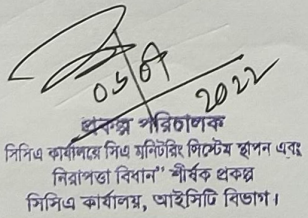 ০৬ ০৭ 2022
প্রকল্প পরিচালক
সিসিএ কার্যালয়ে সিএ মনিটরিং সিস্টেম স্থাপন এবং
নিরাপত্তা বিধান" শীর্ষক প্রকল্প
সিসিএ কার্যালয়, আইসিটি বিভাগ।